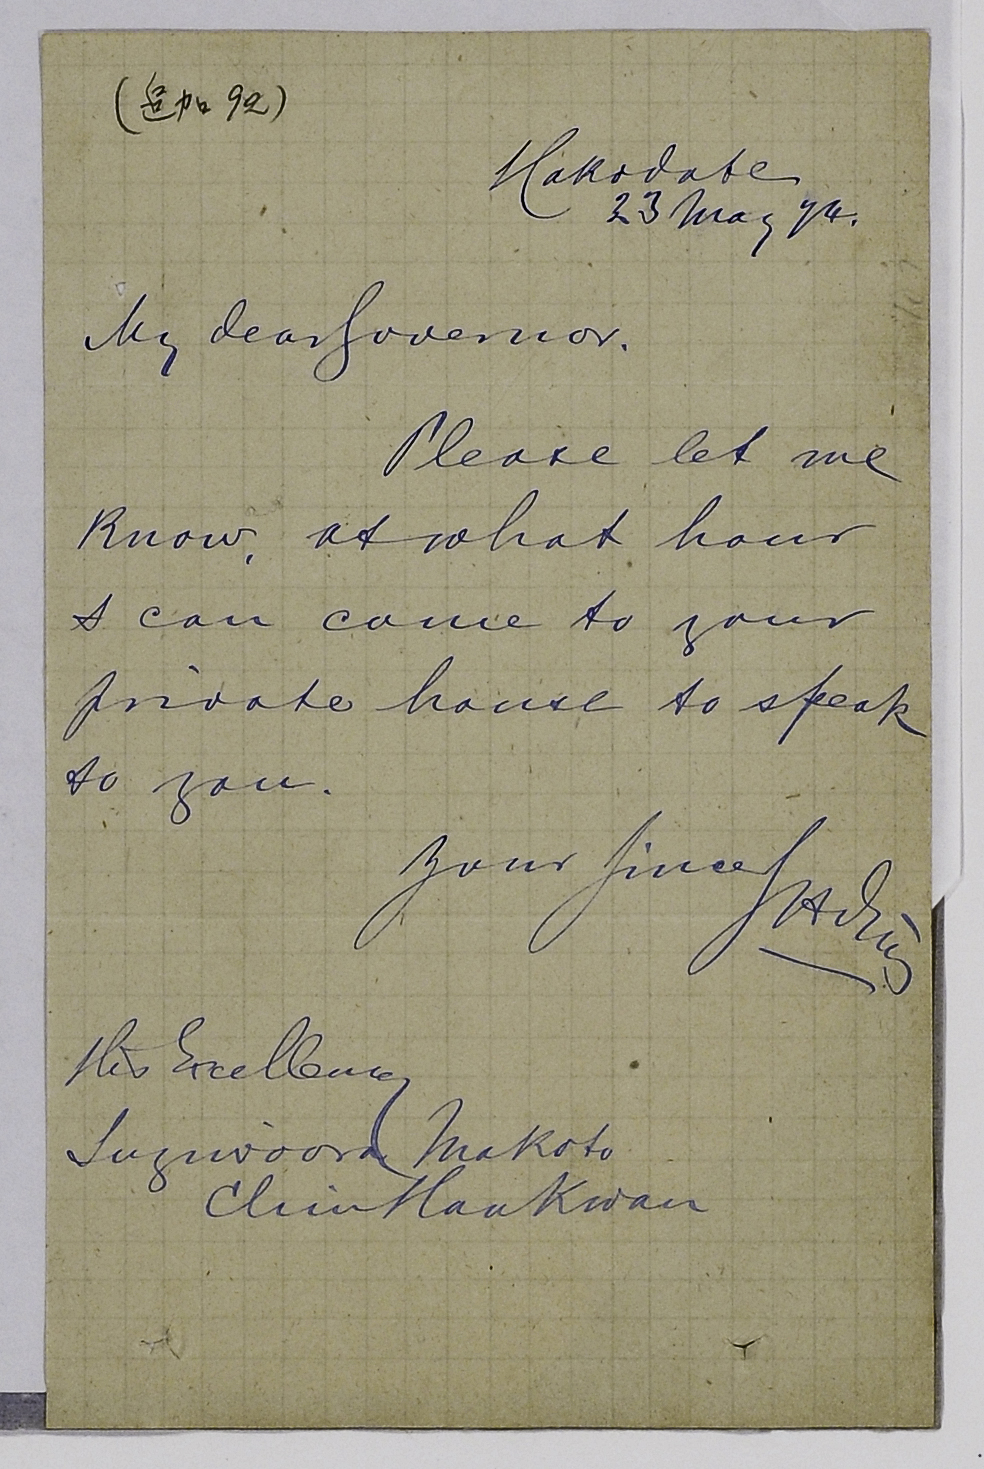 (追加 92)
Hakodate
23 May 74.
My dear Governor.
Please let me
know, at what hour
I can come to your
private house to speak
to you.
Your sincerl
His Excellency
Sugiwoora Makoto
Chiu Hau Kwan